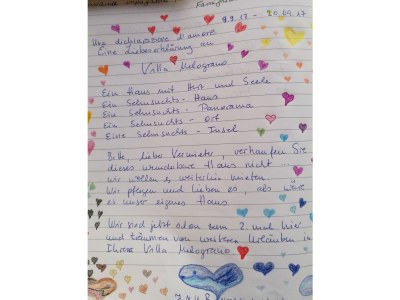 9.9.17 - 20.09.17
Una dichiarazione d'amore
Eine Liebeserklärung an
Villa Melograno
Ein Haus mit Herz und Seele
Ein Sehnsuchts - Haus
Ein Sehnsuchts - Panorama
Ein Sehnsuchts - Ort
Eine Sehnsuchts - Insel
Bitte, lieber Vermieter, verkaufen Sie
dieses wunderbare Haus nicht ...
wir wollen es weiterhin mieten
Wir pflegen und lieben es, als wäre
es unser eigenes Haus.
Wir sind jetzt schon zum 2. mal hier
und träumen von weiteren Urlauben in
Ihrer Villa Melograno